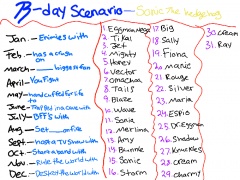 B-day Scenario - Sonic the hedgehog
Jan. - Enimies with
Feb. - has a crush on
march - biggest fan
April - You fight
may - handcuffed for life to
June - in a cave with
July - BFF's with
Aug - Set on fire
Sept. - has a TV show with
Oct. - Share a band with
Nov. - Ride the world with
Dec. - Destroy the world with
1. Eggman Nega
2. Tikal
3. Jet
4. Mighty
5. Honey
6. Vector
7. Omachao
8. Tails
9. Blaze
10. Wave
11. Sonia
12. Merlina
13. Amy
14. Bunnie
15. Sonic
16. Storm
17. Big
18. Sally
19. Fiona
20. manic
21. Rouge
22. Silver
23. Maria
24. Espio
25. Dr. Eggman
26. Shadow
27. Knuckles
28. cream
29. charmy
30. cream
31. Ray